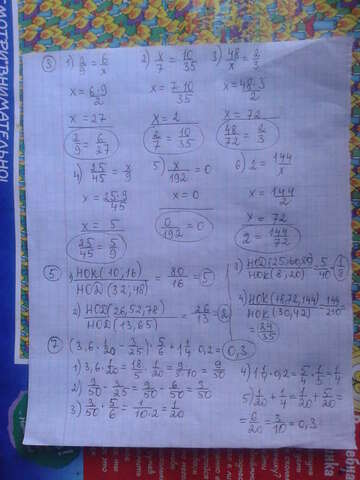 ③ 1) 2/9 = 6/x 2) x/7 = 10/35 3) 48/x = 2/3
x = 6·9/2 x = 7·10/35 x = 48·3/2
x = 27 x = 2 x = 72
2/9 = 6/27 2/7 = 10/35 48/72 = 2/3
4) 25/45 = x/9 5) x/192 = 0 6) 2 = 144/x
x = 25·9/45 x = 0 x = 144/2
x = 5 0/192 = 0 x = 72
25/45 = 5/9 2 = 144/72
⑤ 1) НОК(10,16)/НОД(32,48) = 80/16 = 5 3) НОД(25,60,80)/НОК(8,20) = 5/40 = 1/8
2) НОД(26,52,78)/НОД(13,65) = 26/13 = 2 4) НОК(16,72,144)/НОК(30,42) = 144/210
= 24/35
⑦ (3,6·1/20 - 3/25)·5/6 + 1 1/4·0,2 = 0,3
1) 3,6·1/20 = 18/5·1/20 = 9/5·10 = 9/50 4) 1 1/4·0,2 = 5/4·1/5 = 1/4
2) 9/50 - 3/25 = 9/50 - 6/50 = 3/50 5) 1/20 + 1/4 = 1/20 + 5/20 =
3) 3/50·5/6 = 1/10·2 = 1/20 = 6/20 = 3/10 = 0,3
СМОТРИТ ВНИМАТЕЛЬНО